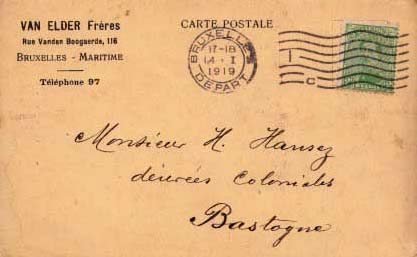 VAN ELDER Frères
Rue Vanden Boogaerde, 116
BRUXELLES - MARITIME
Téléphone 97
CARTE POSTALE
BRUXELLES
17-18
14 · I
1919
DEPART
I
C
Monsieur H. Hansez
dénrées Coloniales
Bastogne